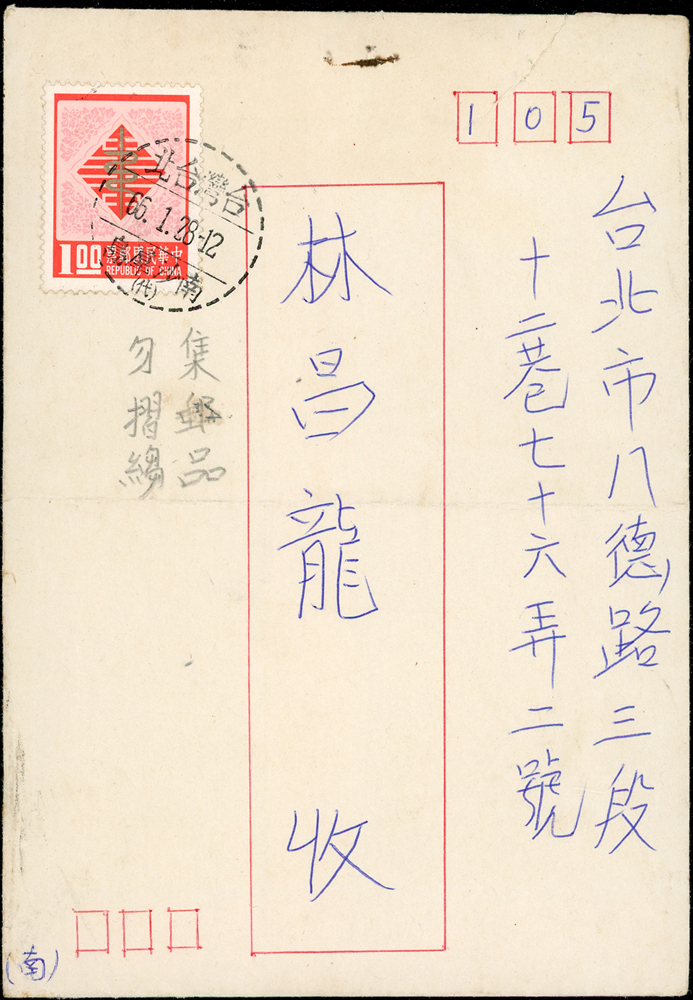 105
台北市八德路三段
十二巷七十六弄二號
林昌龍 收
集郵品
勿摺縐
票郵國民華中
1.00 REPUBLIC OF CHINA
北台灣台
66.1.28-12
(代)
(南)